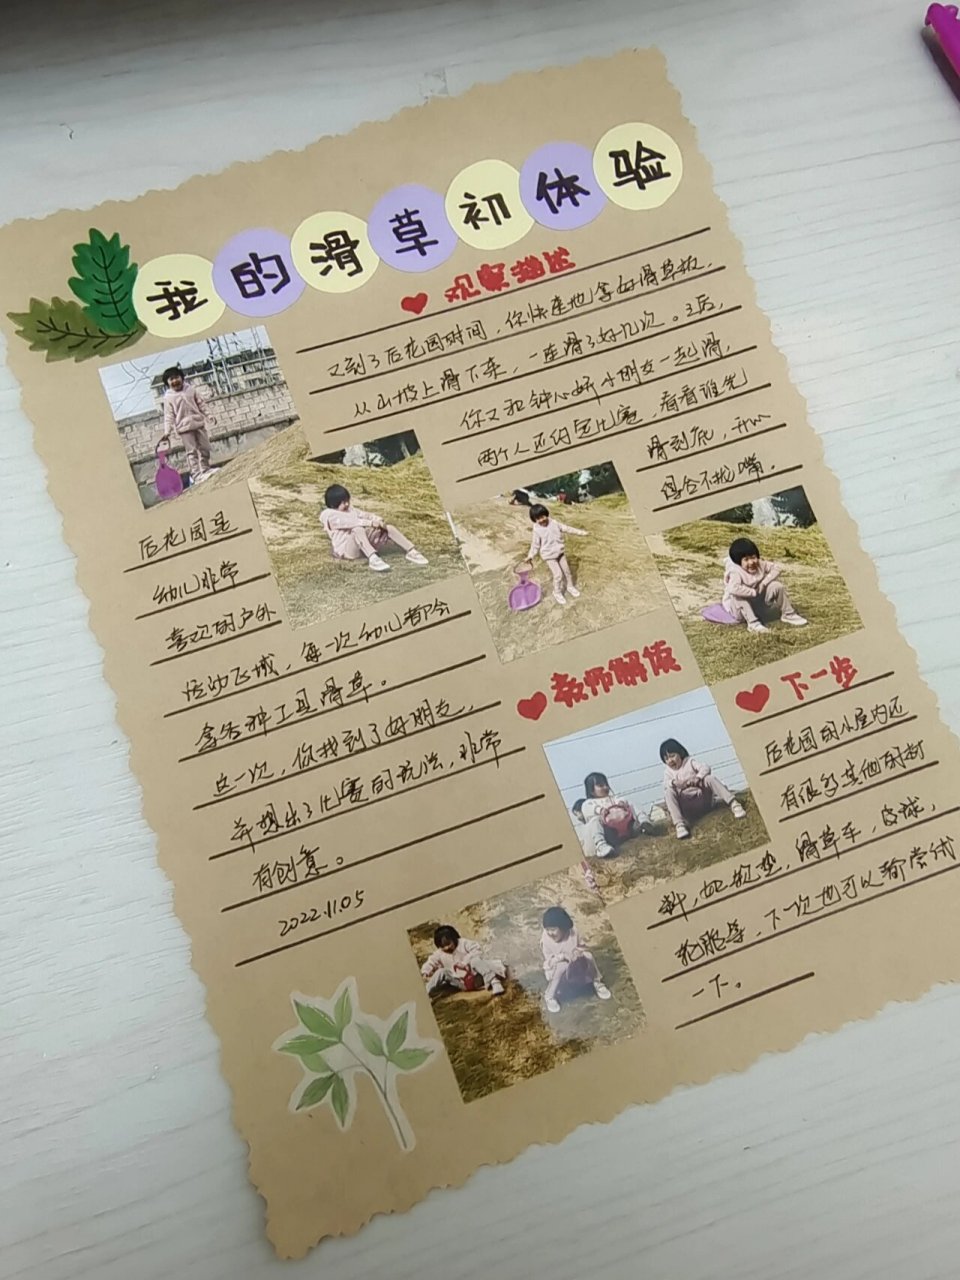 我的滑草初体验
观察描述
又到了后花园时间，你快速地拿好滑草板，
从山坡上滑下来，一连滑了好几次。之后，
你又和钟心妍小朋友一起滑，
两个人还约定比赛，看看谁先
滑到底，开心
得合不拢嘴。
后花园是
幼儿非常
喜欢的户外
活动区域，每一次幼儿都会
拿各种工具滑草。
这一次，你找到了好朋友，
并想出了比赛的玩法，非常
有创意。
2022.11.05
教师解读
下一步
后花园的小屋内还
有很多其他的材
料，如软垫，滑草车，皮球，
轮胎等，下一次也可以尝试
一下。